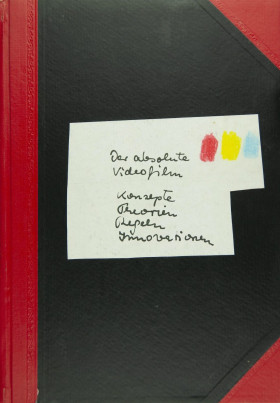 Der absolute
Videofilm
Konzepte
Theorien
Regeln
Innovationen